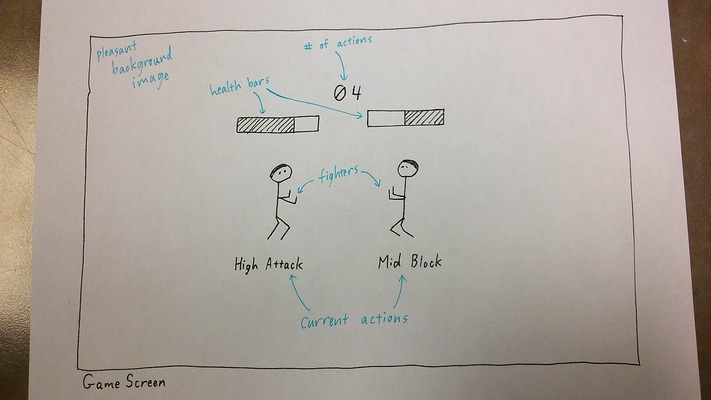 pleasant
background
image
# of actions
health bars
04
fighters
High Attack
Mid Block
Current actions
Game Screen